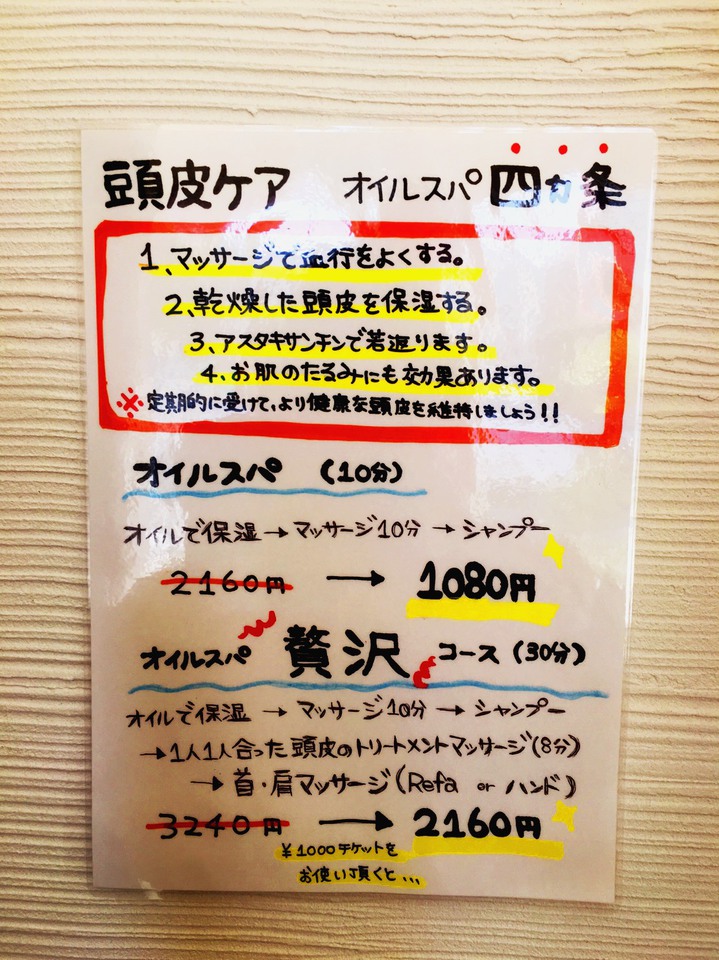 頭皮ケア オイルスパ 四カ条
1、マッサージで血行をよくする。
2、乾燥した頭皮を保湿する。
3、アスタキサンチンで若返ります。
4、お肌のたるみにも効果あります。
※定期的に受けて、より健康な頭皮を維持しましょう!!
オイルスパ (10分)
オイルで保湿→マッサージ10分→シャンプー
2160円 → 1080円
オイルスパ 贅沢 コース (30分)
オイルで保湿→マッサージ10分→シャンプー
→1人1人合った頭皮のトリートメントマッサージ(8分)
→首・肩マッサージ(Refa or ハンド)
3240円 → 2160円
¥1000チケットを
お使い頂くと...